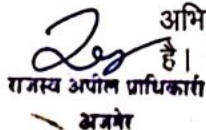 अभि
है।
राजस्व अपील प्राधिकारी
अजमेर